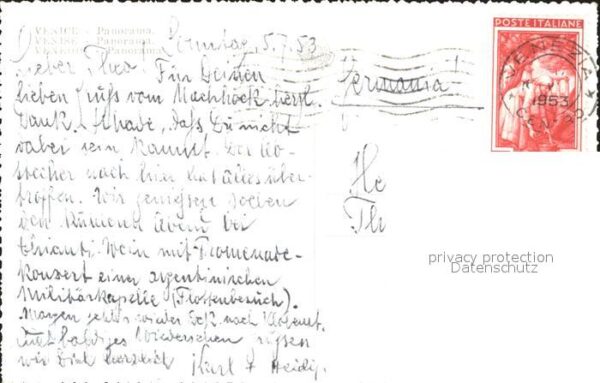 VENISE - Panorama.
VENISE - Panorama.
VENEDIG - Panorama.
Sonntag, 5.7.53
Lieber Theo! Für Deinen
lieben Gruss vom herzl.
Dank. Schade, dass Du nicht
dabei sein kannst. Der Ab-
stecher nach hier hat alles über-
troffen. Wir geniessen soeben
den Abend bei
Chianti Wein mit Promenade-
Konzert einer argentinischen
Militärkapelle (Flottenbesuch).
Morgen geht's wieder nach
Auf baldiges Wiedersehen grüssen
wir Dich herzlich Karl & Heidi
Germania
He
Th
POSTE ITALIANE
VENEZIA
1953
privacy protection
Datenschutz